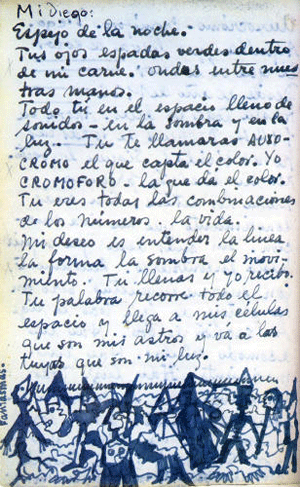 Mi Diego:
Espejo de la noche.
Tus ojos espadas verdes dentro
de mi carne. ondas entre nues
tras manos.
Todo tú en el espacio lleno de
sonidos - en la sombra y en la
luz. Tu te llamaras AUXO-
CROMO el que capta el color. Yo
CROMOFORO - la que dá el color.
Tu eres todas las combinaciones
de los números. la vida.
mi deseo es entender la linea
la forma la sombra el movi-
miento. Tu llenas y yo recibo.
Tu palabra recorre todo el
espacio y llega a mis células
que son mis astros y vá a las
tuyas que son mi luz.
Fantasmas.